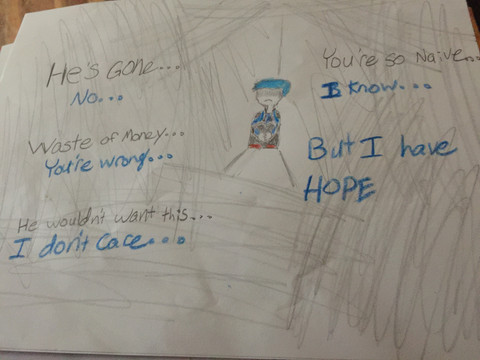 He's Gone...
No...
Waste of Money...
You're wrong...
He wouldn't want this...
I don't care...
You're so Naive...
I know...
But I have
HOPE